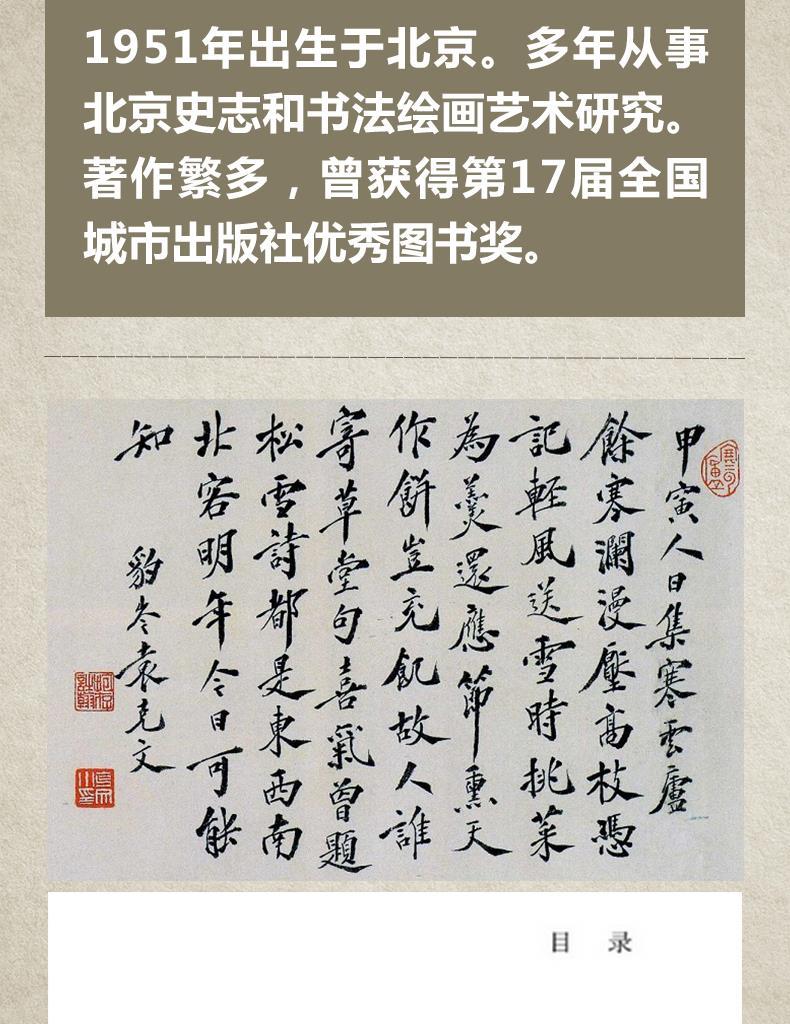 1951年出生于北京。多年从事
北京史志和书法绘画艺术研究。
著作繁多，曾获得第17届全国
城市出版社优秀图书奖。
甲寅人日集寒雲廬
餘寒瀾漫壓高枝憑
記輕風送雪時挑菜
為羹還應節熏天
作餅豈充飢故人誰
寄草堂句喜氣曾題
松雪詩都是東西南
北客明年今日可能
知
豹岑袁克文
目 录